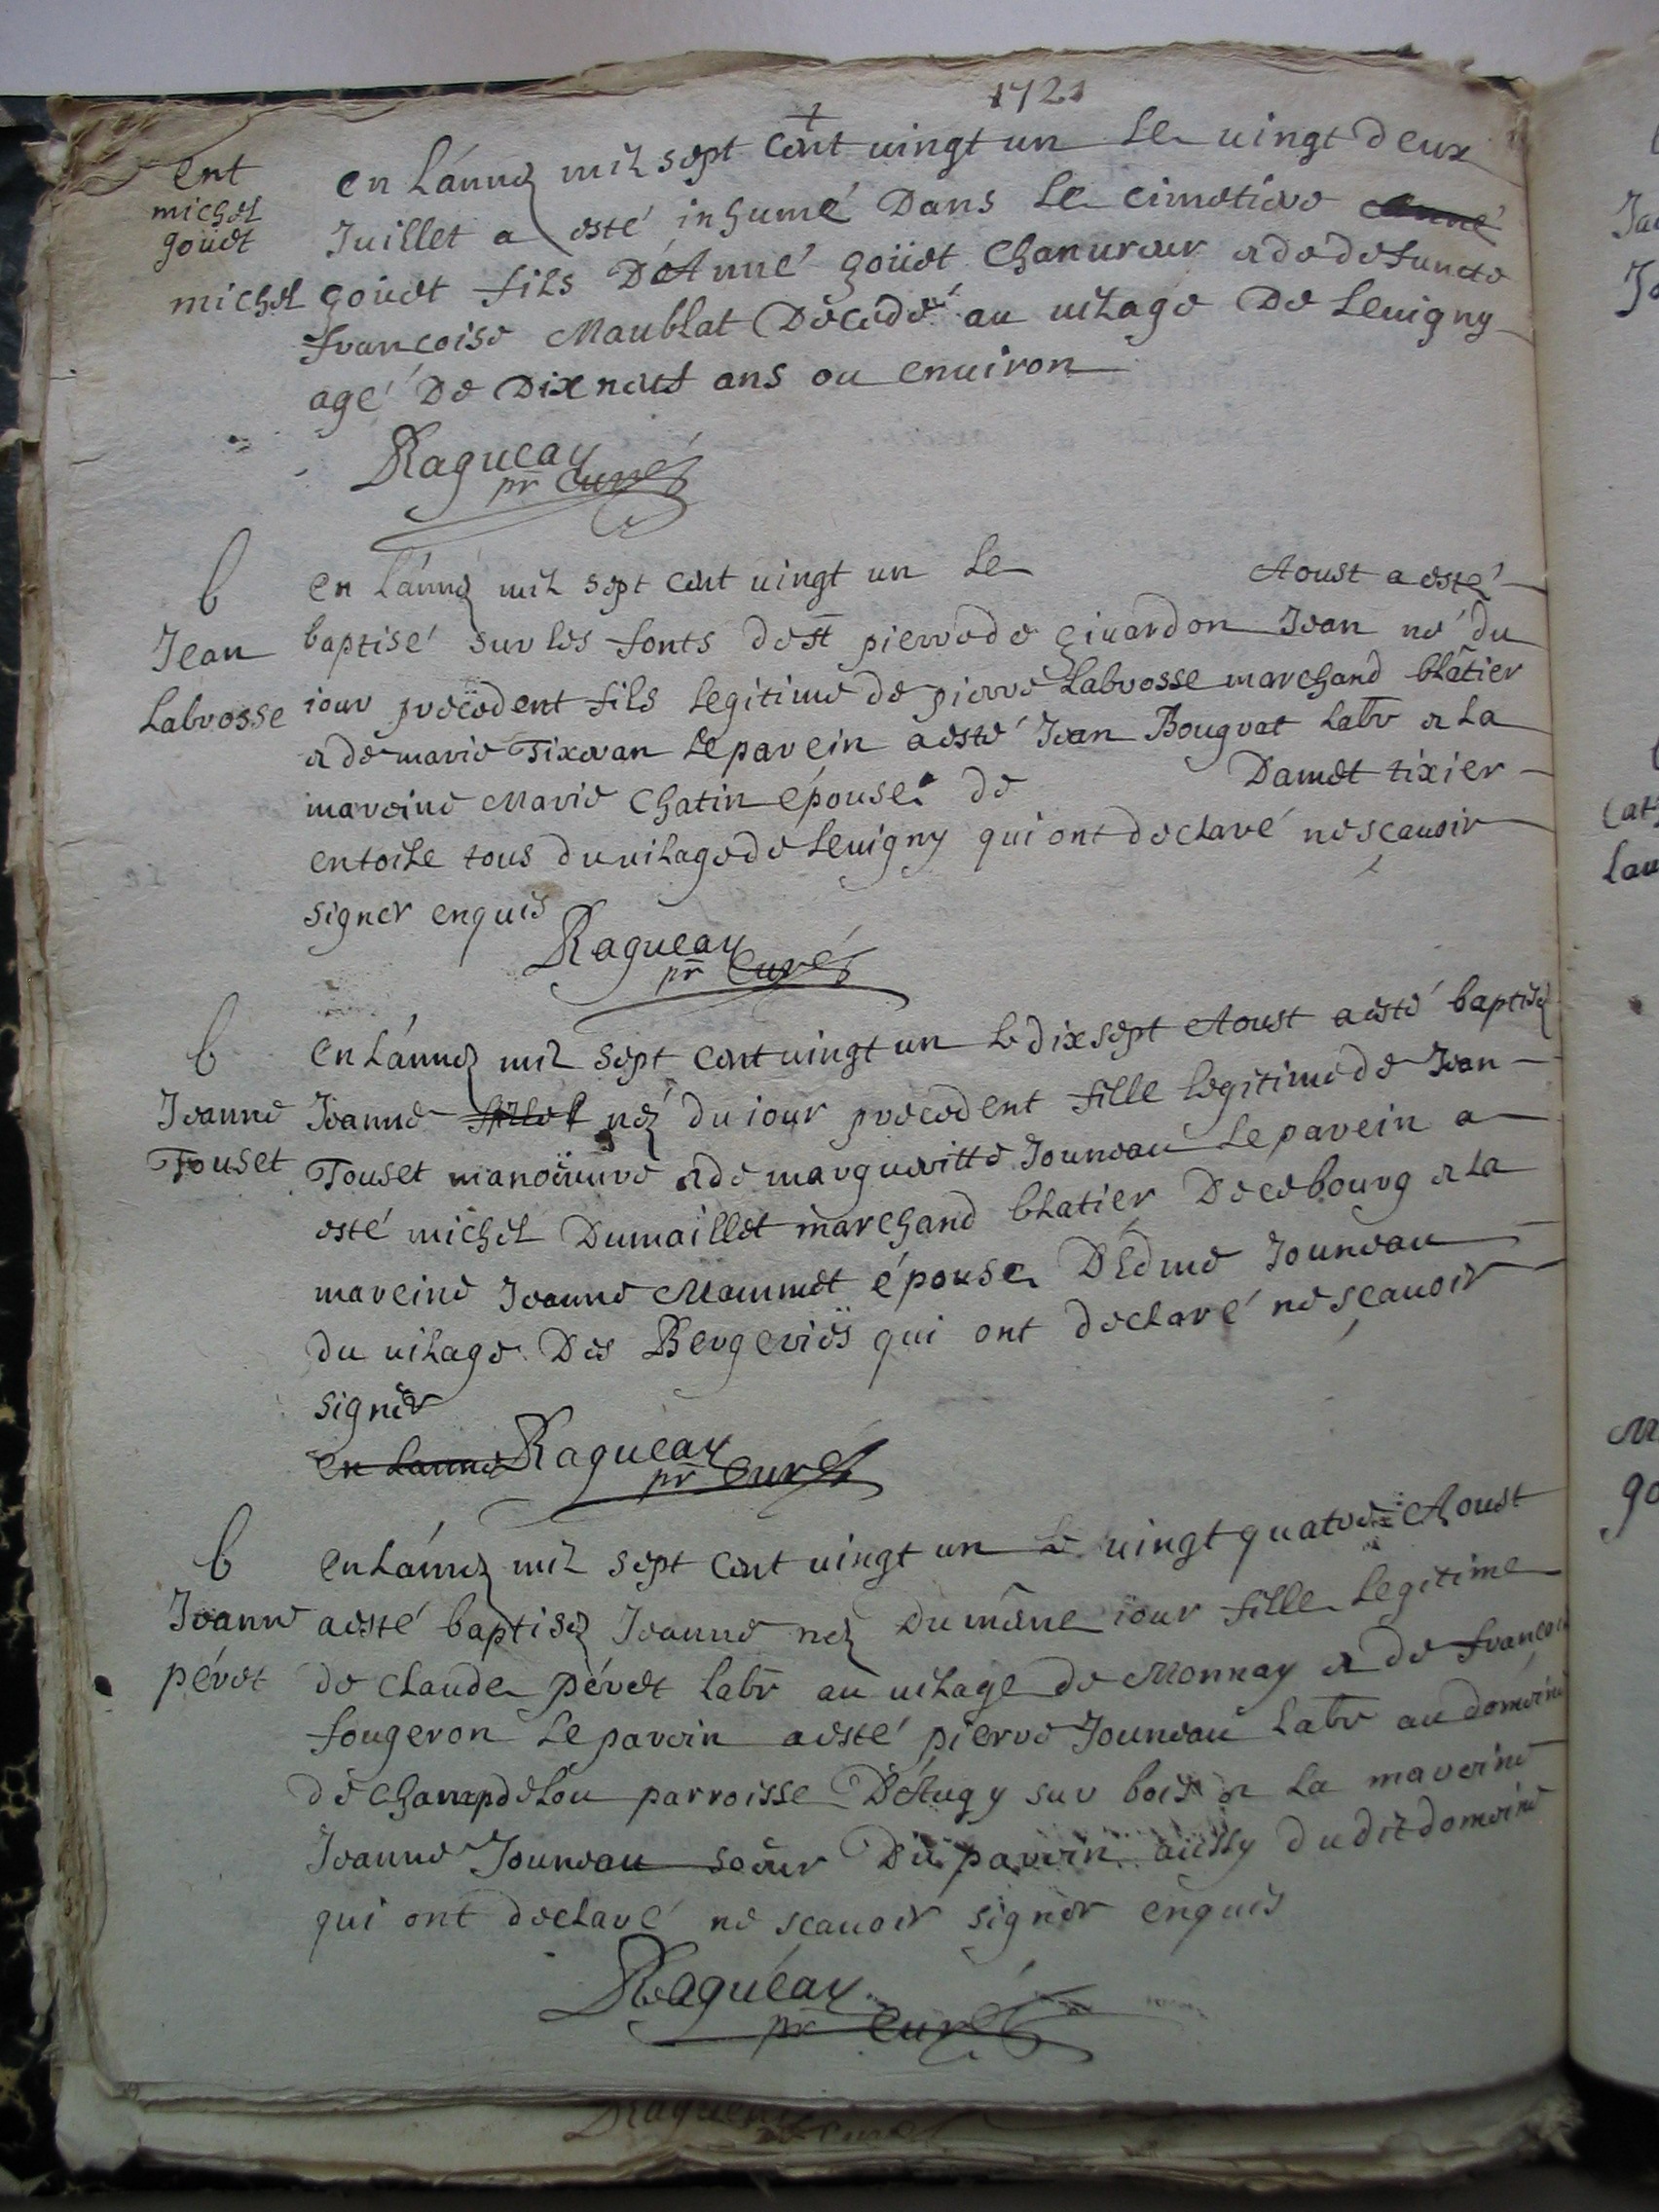 1721
ent
michel
goüet
en Lánneé mil sept cent uingt un Le uingt deux
Juillet a esté inhumé Dans Le cimetiere
michel goüet fils D'Anné goüet Chanureur & de defuncte
francoise Maublat Décédé au uilage De Leuigny
agé De Dix neuf ans ou enuiron
Ragueau
pr Curé
b
Jean
Labrosse
en Lánneé mil sept cent uingt un Le Aoust a esté
baptisé sur les fonts de st pierre de giuardon Jean né du
iour precedent fils legitime de pierre Labrosse marchand blâtier
& de marie Tixeran Le parein a esté Jean Bougrat Labr & La
mareine Marie Chatin épouse de Damet tixier
en toile tous du uilage de Leuigny qui ont declaré ne scauoir
signer enquis
Ragueau
pr Curé
b
Jeanne
Touset
en Lánneé mil sept cent uingt un Le dix sept Aoust a esté baptiseé
Jeanne neé du iour precedent fille legitime de Jean
Touset manoeuure & de margueritte Jouneau Le parein a
esté michel Dumaillet marchand blatier De ce bourg & La
mareine Jeanne Mammet épouse D'Edme Jouneau
du uilage Des Bergeriës qui ont declaré ne scauoir
signer
en Lanne Ragueau
pr Curé
b
Jeanne
péret
en Lánneé mil sept cent uingt un Le uingt quatre Aoust
a esté baptiseé Jeanne neé Du même iour fille Legitime
de claude péret labr au uilage de Monnay & de
fougeron Le parein a esté pierre Jouneau Labr au domeine
de champdelou parroisse D'Augy sur bois & La mareine
Jeanne Jouneau soeur Du parein aussy du dit domeine
qui ont declaré ne scauoir signer enquis
Ragueau
pr Curé